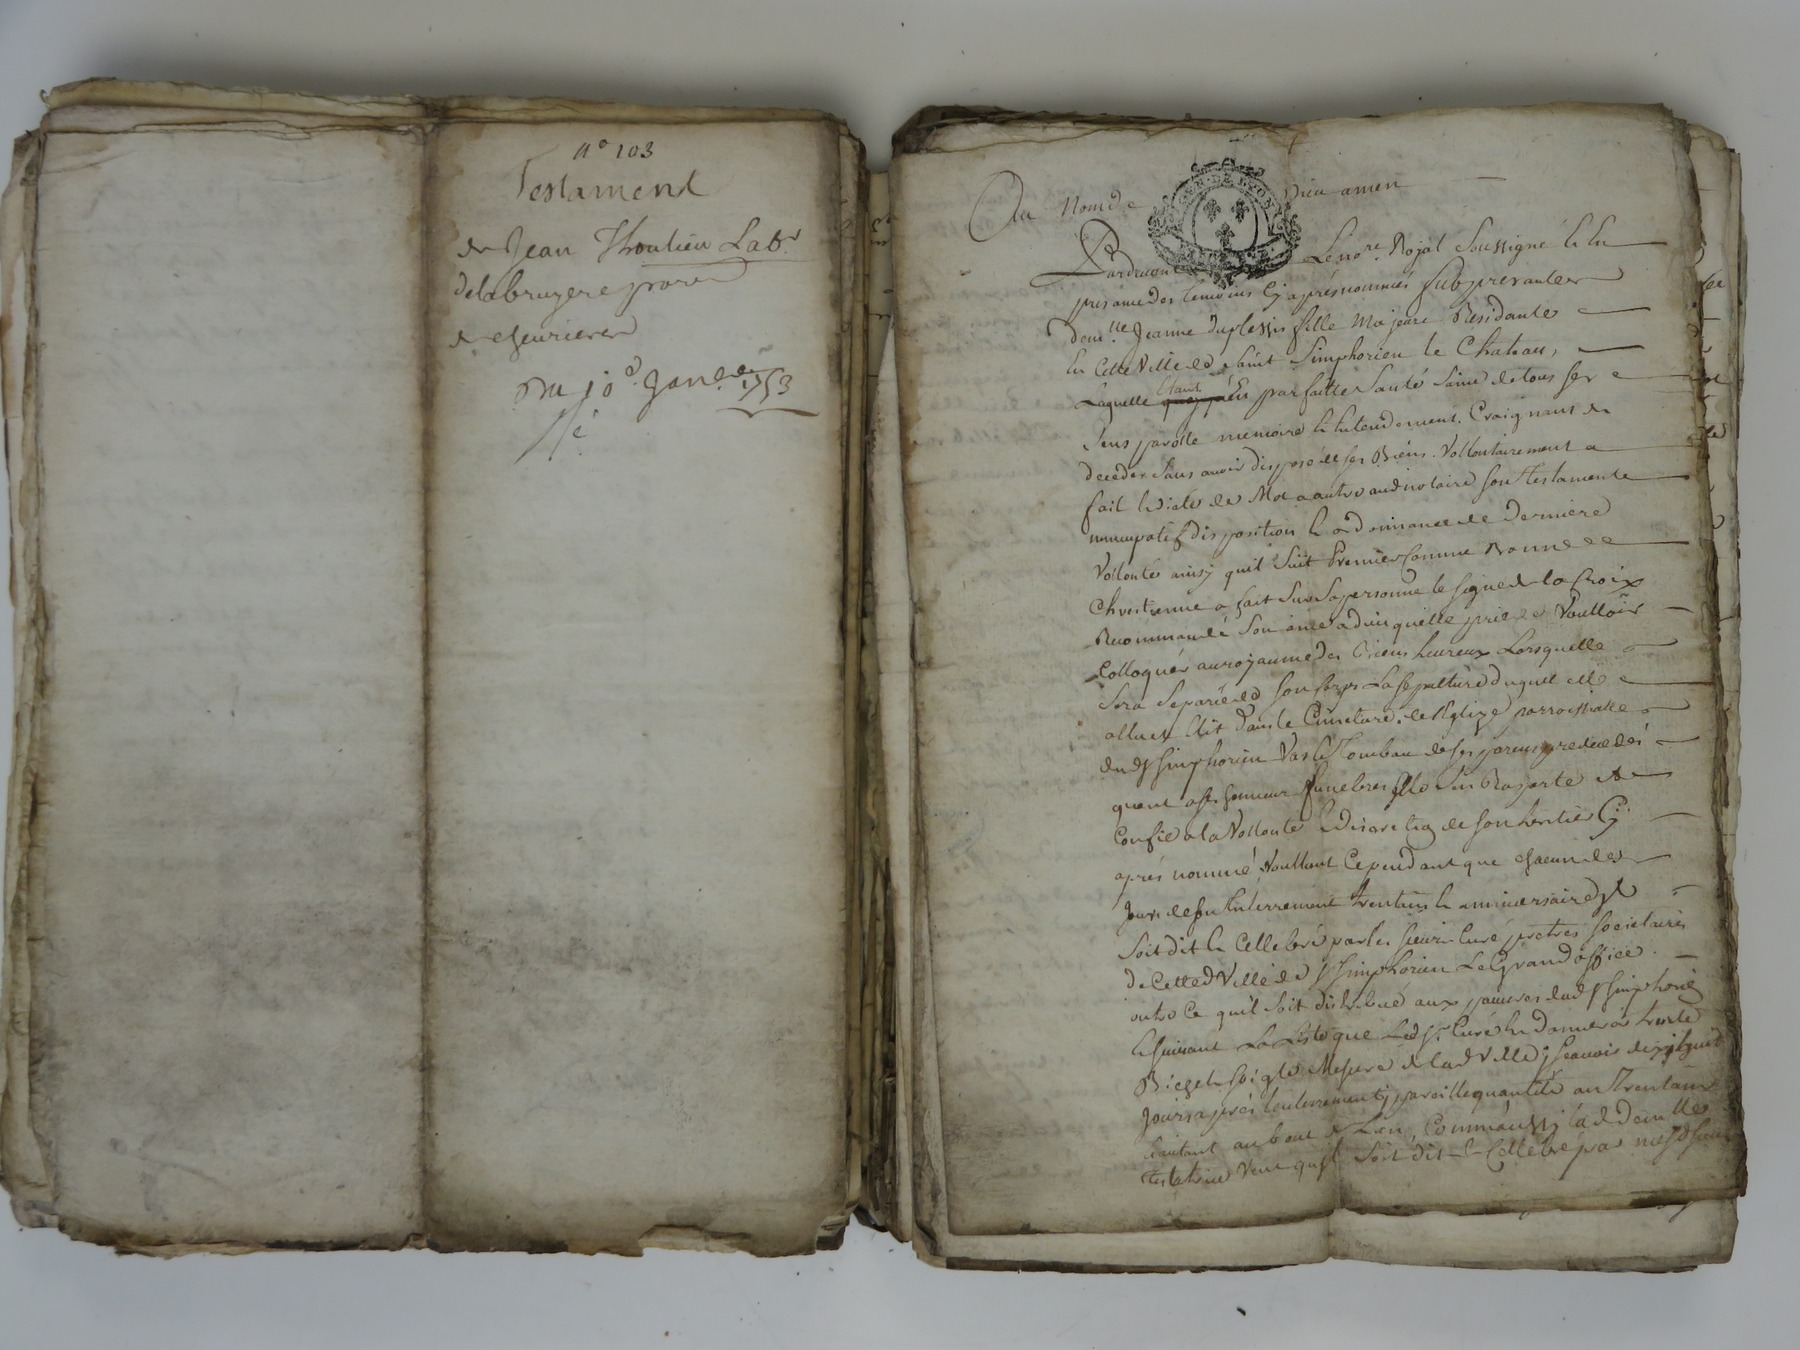 n° 103
Testament
de Jean Thoulieu Labr
de labruyere parr
de chevrieres
Du 10e Janr 1753
Au Nom de Dieu amen
GEN. DE LYON
Pardevant Le nore. Royal Soussigné & En
presance des temoins Cy après nommés fut presante
demlle. Jeanne duplessis fille Majeure Residante
En Cette Ville de Saint Simphorien le Chateau,
Laquelle Etant En parfaitte Santé Saine de tous ses
Sens parolle memoire & Entendement. Craignant de
deceder Sans avoir disposé de ses Biens. Vollontairement a
fait & dicté de Mot a autre aud notaire son Testament
nuncupatif disposition & ordonnance de derniere
Vollonté ainsy quil Suit Premier Comme Bonne
Chrestienne a fait Sur Sa personne le signe de la Croix
Recommandé Son ame a dieu quelle prie de Voulloir
Colloquer au royaume des Biens heureux Lors quelle
Sera Separée de Son Corps La sepulture duquel elle
a Elit dans le Cimetiere de l'Eglize parroissialle
dud St simphorien Vas & Tombeau de ses parens predecedés
quant a ses honneurs funebres Elle S'en Raporte &
Confie a la Vollonté & discretion de son heritier Cy
après nommé, Voullant Cependant que chacun des
Jours de son Enterrement trentain & anniversaire
Soit dit & Cellebré par les sieurs Curé pretres societaires
de Cetted Ville de St Simphorien Le Grand office.
outre Ce quil soit distribué aux pauvres dud St simphorien
& suivant La Liste que Led sr. Curé En donnera trente
Bichets soigle Mesure de lad Ville sçavoir dix
Jours après lenterrement pareille quantité au Trentain
& autant au bout de Lan, Comm'aussy lad demlle
testatrice Veut quil Soit dit & Cellebré par mesd sieurs